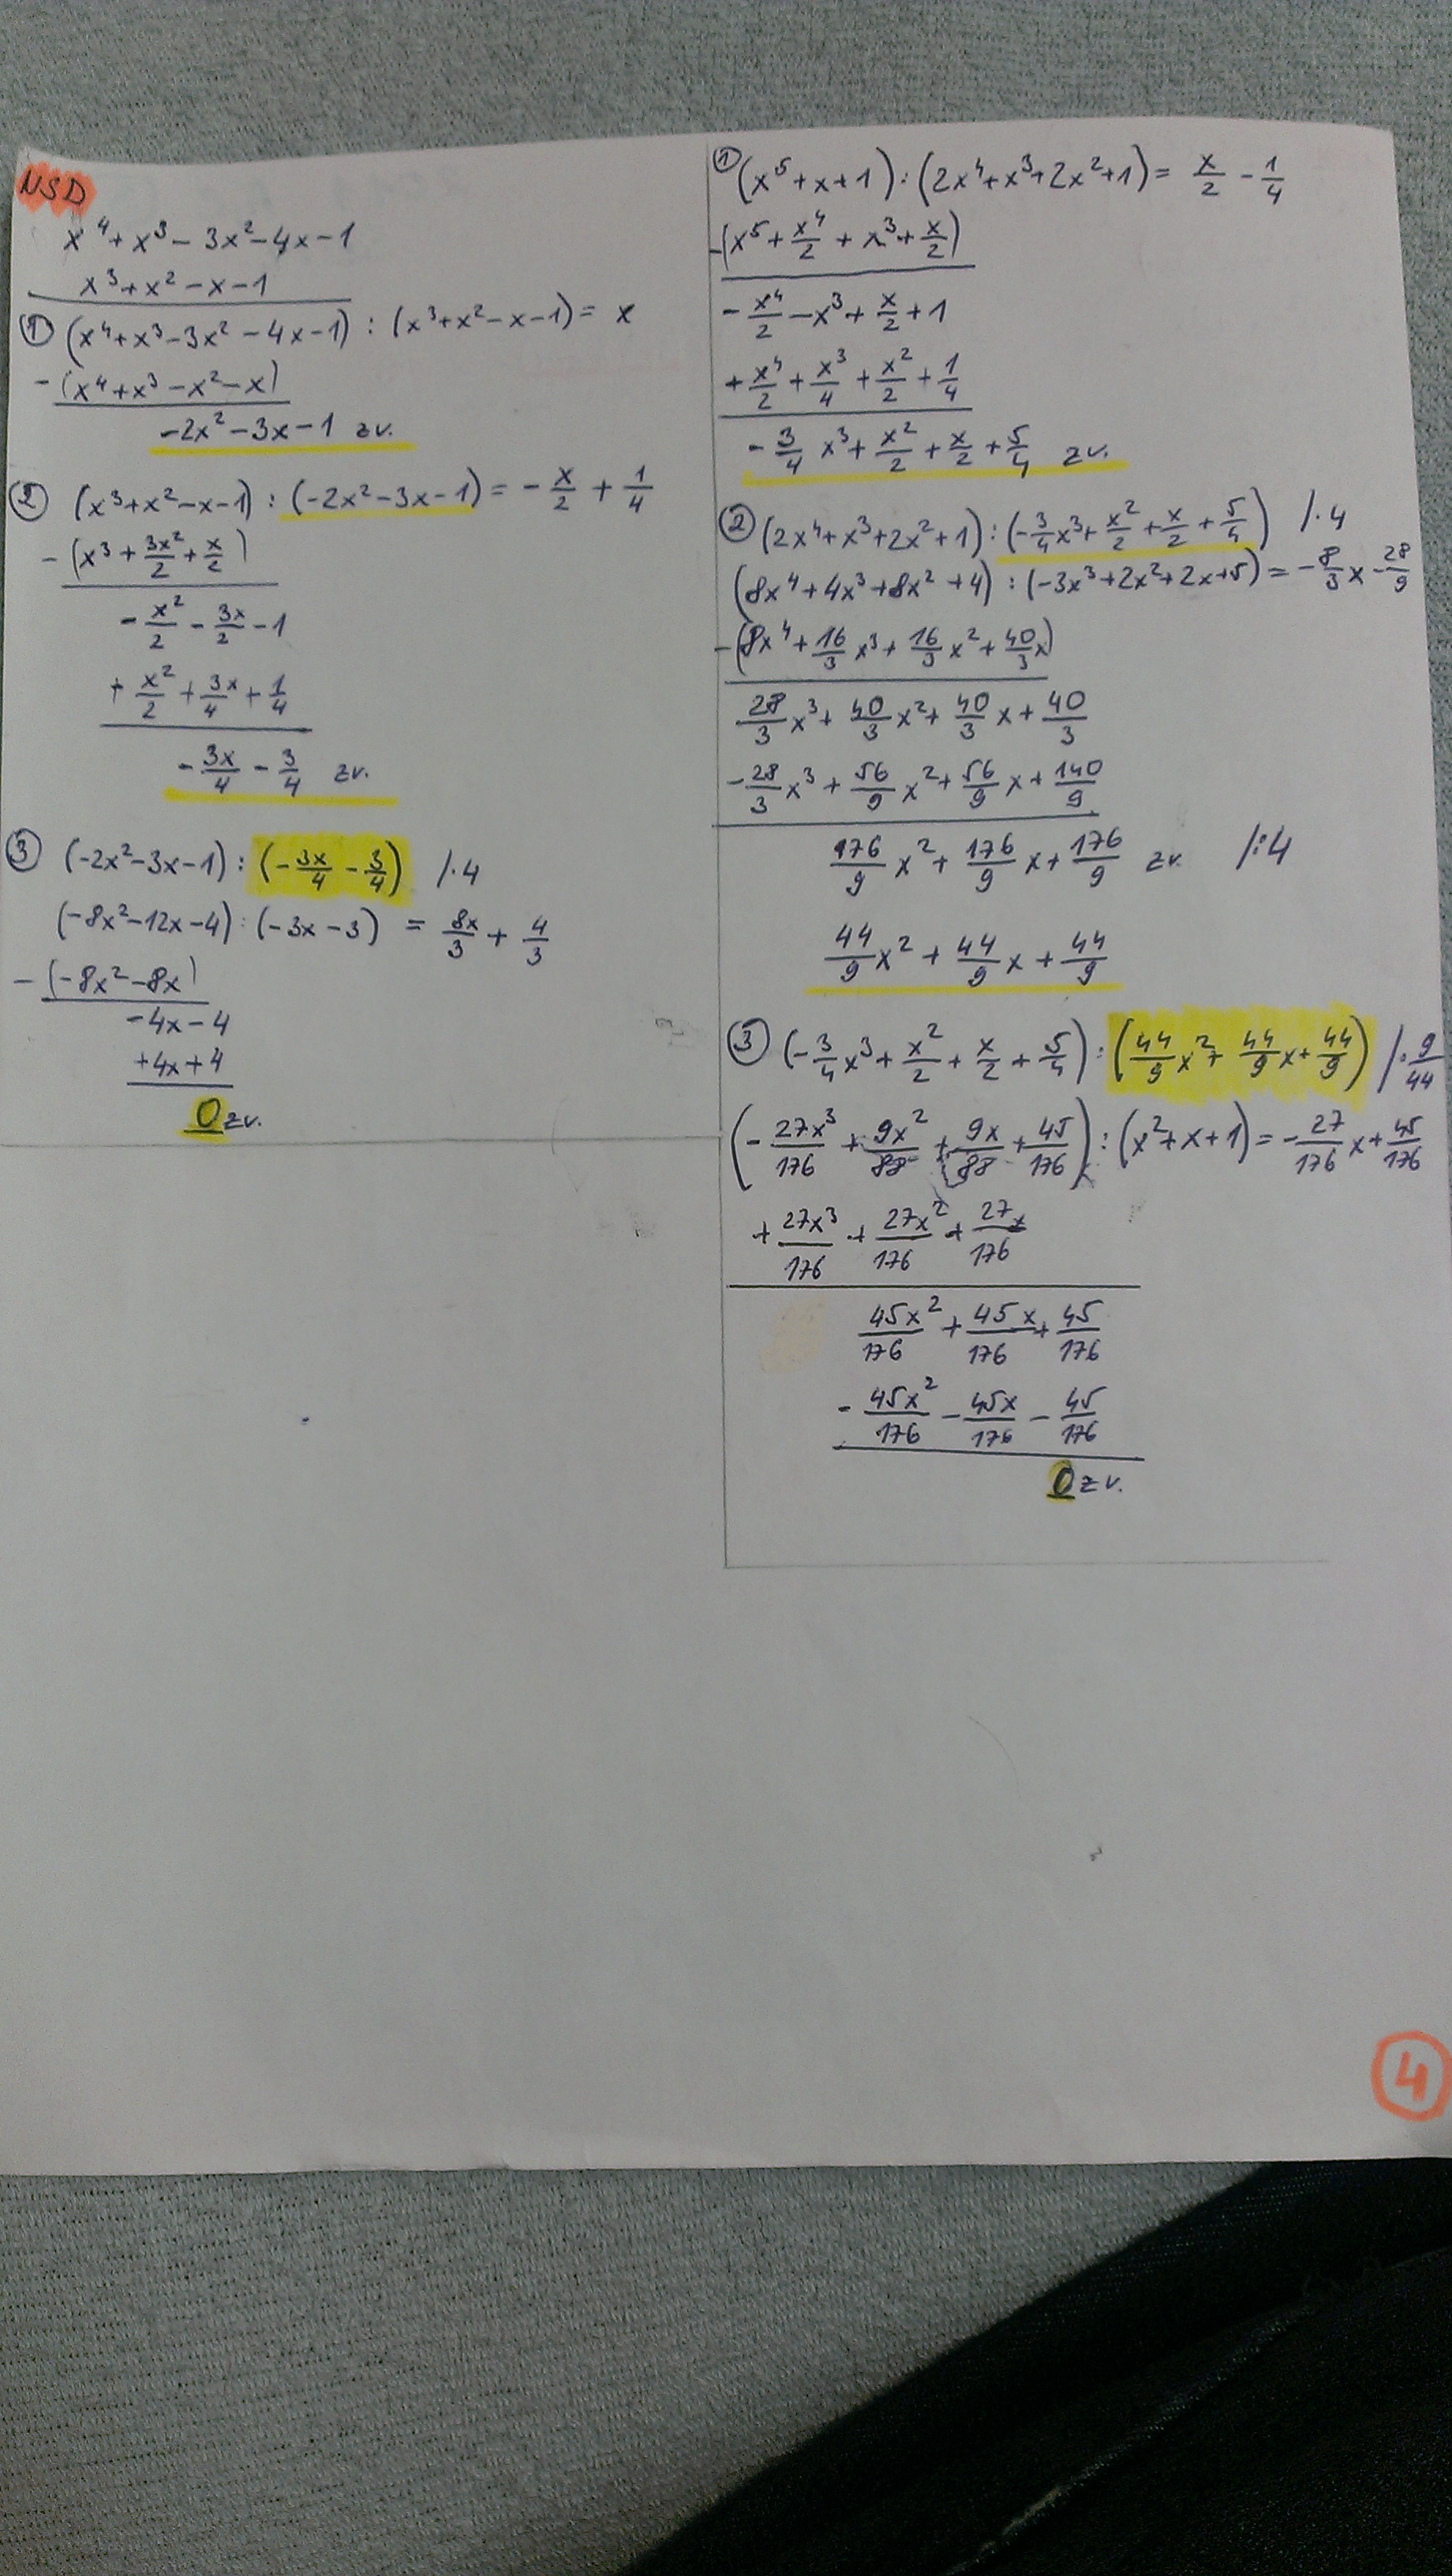 NSD
x⁴ + x³ − 3x² − 4x − 1
x³ + x² − x − 1
① (x⁴ + x³ − 3x² − 4x − 1) : (x³ + x² − x − 1) = x
− (x⁴ + x³ − x² − x)
−2x² − 3x − 1 zv.
② (x³ + x² − x − 1) : (−2x² − 3x − 1) = − x/2 + 1/4
− (x³ + 3x²/2 + x/2)
− x²/2 − 3x/2 − 1
+ x²/2 + 3x/4 + 1/4
− 3x/4 − 3/4 zv.
③ (−2x² − 3x − 1) : (− 3x/4 − 3/4) /·4
(−8x² − 12x − 4) : (−3x − 3) = 8x/3 + 4/3
− (−8x² − 8x)
−4x − 4
+4x + 4
0 zv.
① (x⁵ + x + 1) : (2x⁴ + x³ + 2x² + 1) = x/2 − 1/4
− (x⁵ + x⁴/2 + x³ + x/2)
− x⁴/2 − x³ + x/2 + 1
+ x⁴/2 + x³/4 + x²/2 + 1/4
− 3/4 x³ + x²/2 + x/2 + 5/4 zv.
② (2x⁴ + x³ + 2x² + 1) : (− 3/4 x³ + x²/2 + x/2 + 5/4) /·4
(8x⁴ + 4x³ + 8x² + 4) : (−3x³ + 2x² + 2x + 5) = − 8/3 x − 28/9
− (8x⁴ + 16/3 x³ + 16/3 x² + 40/3 x)
28/3 x³ + 40/3 x² + 40/3 x + 40/3
− 28/3 x³ + 56/9 x² + 56/9 x + 140/9
176/9 x² + 176/9 x + 176/9 zv. /:4
44/9 x² + 44/9 x + 44/9
③ (− 3/4 x³ + x²/2 + x/2 + 5/4) : (44/9 x² + 44/9 x + 44/9) /· 9/44
(− 27x³/176 + 9x²/88 + 9x/88 + 45/176) : (x² + x + 1) = − 27/176 x + 45/176
+ 27x³/176 + 27x²/176 + 27x/176
45x²/176 + 45x/176 + 45/176
− 45x²/176 − 45x/176 − 45/176
0 zv.
4